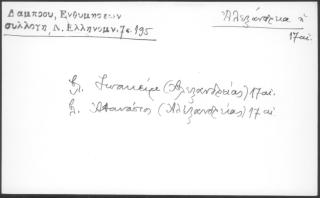 Λάμπρου, Ενθυμήσεων
συλλογή, Ν. Ελληνομν. 7ος 195
Αλεξάνδρεια ἡ
17 αἰ.
βλ. Ἰωακείμ (Ἀλεξανδρείας) 17 αἰ.
βλ. Ἀθανάσιος (Ἀλεξανδρείας) 17 αἰ.